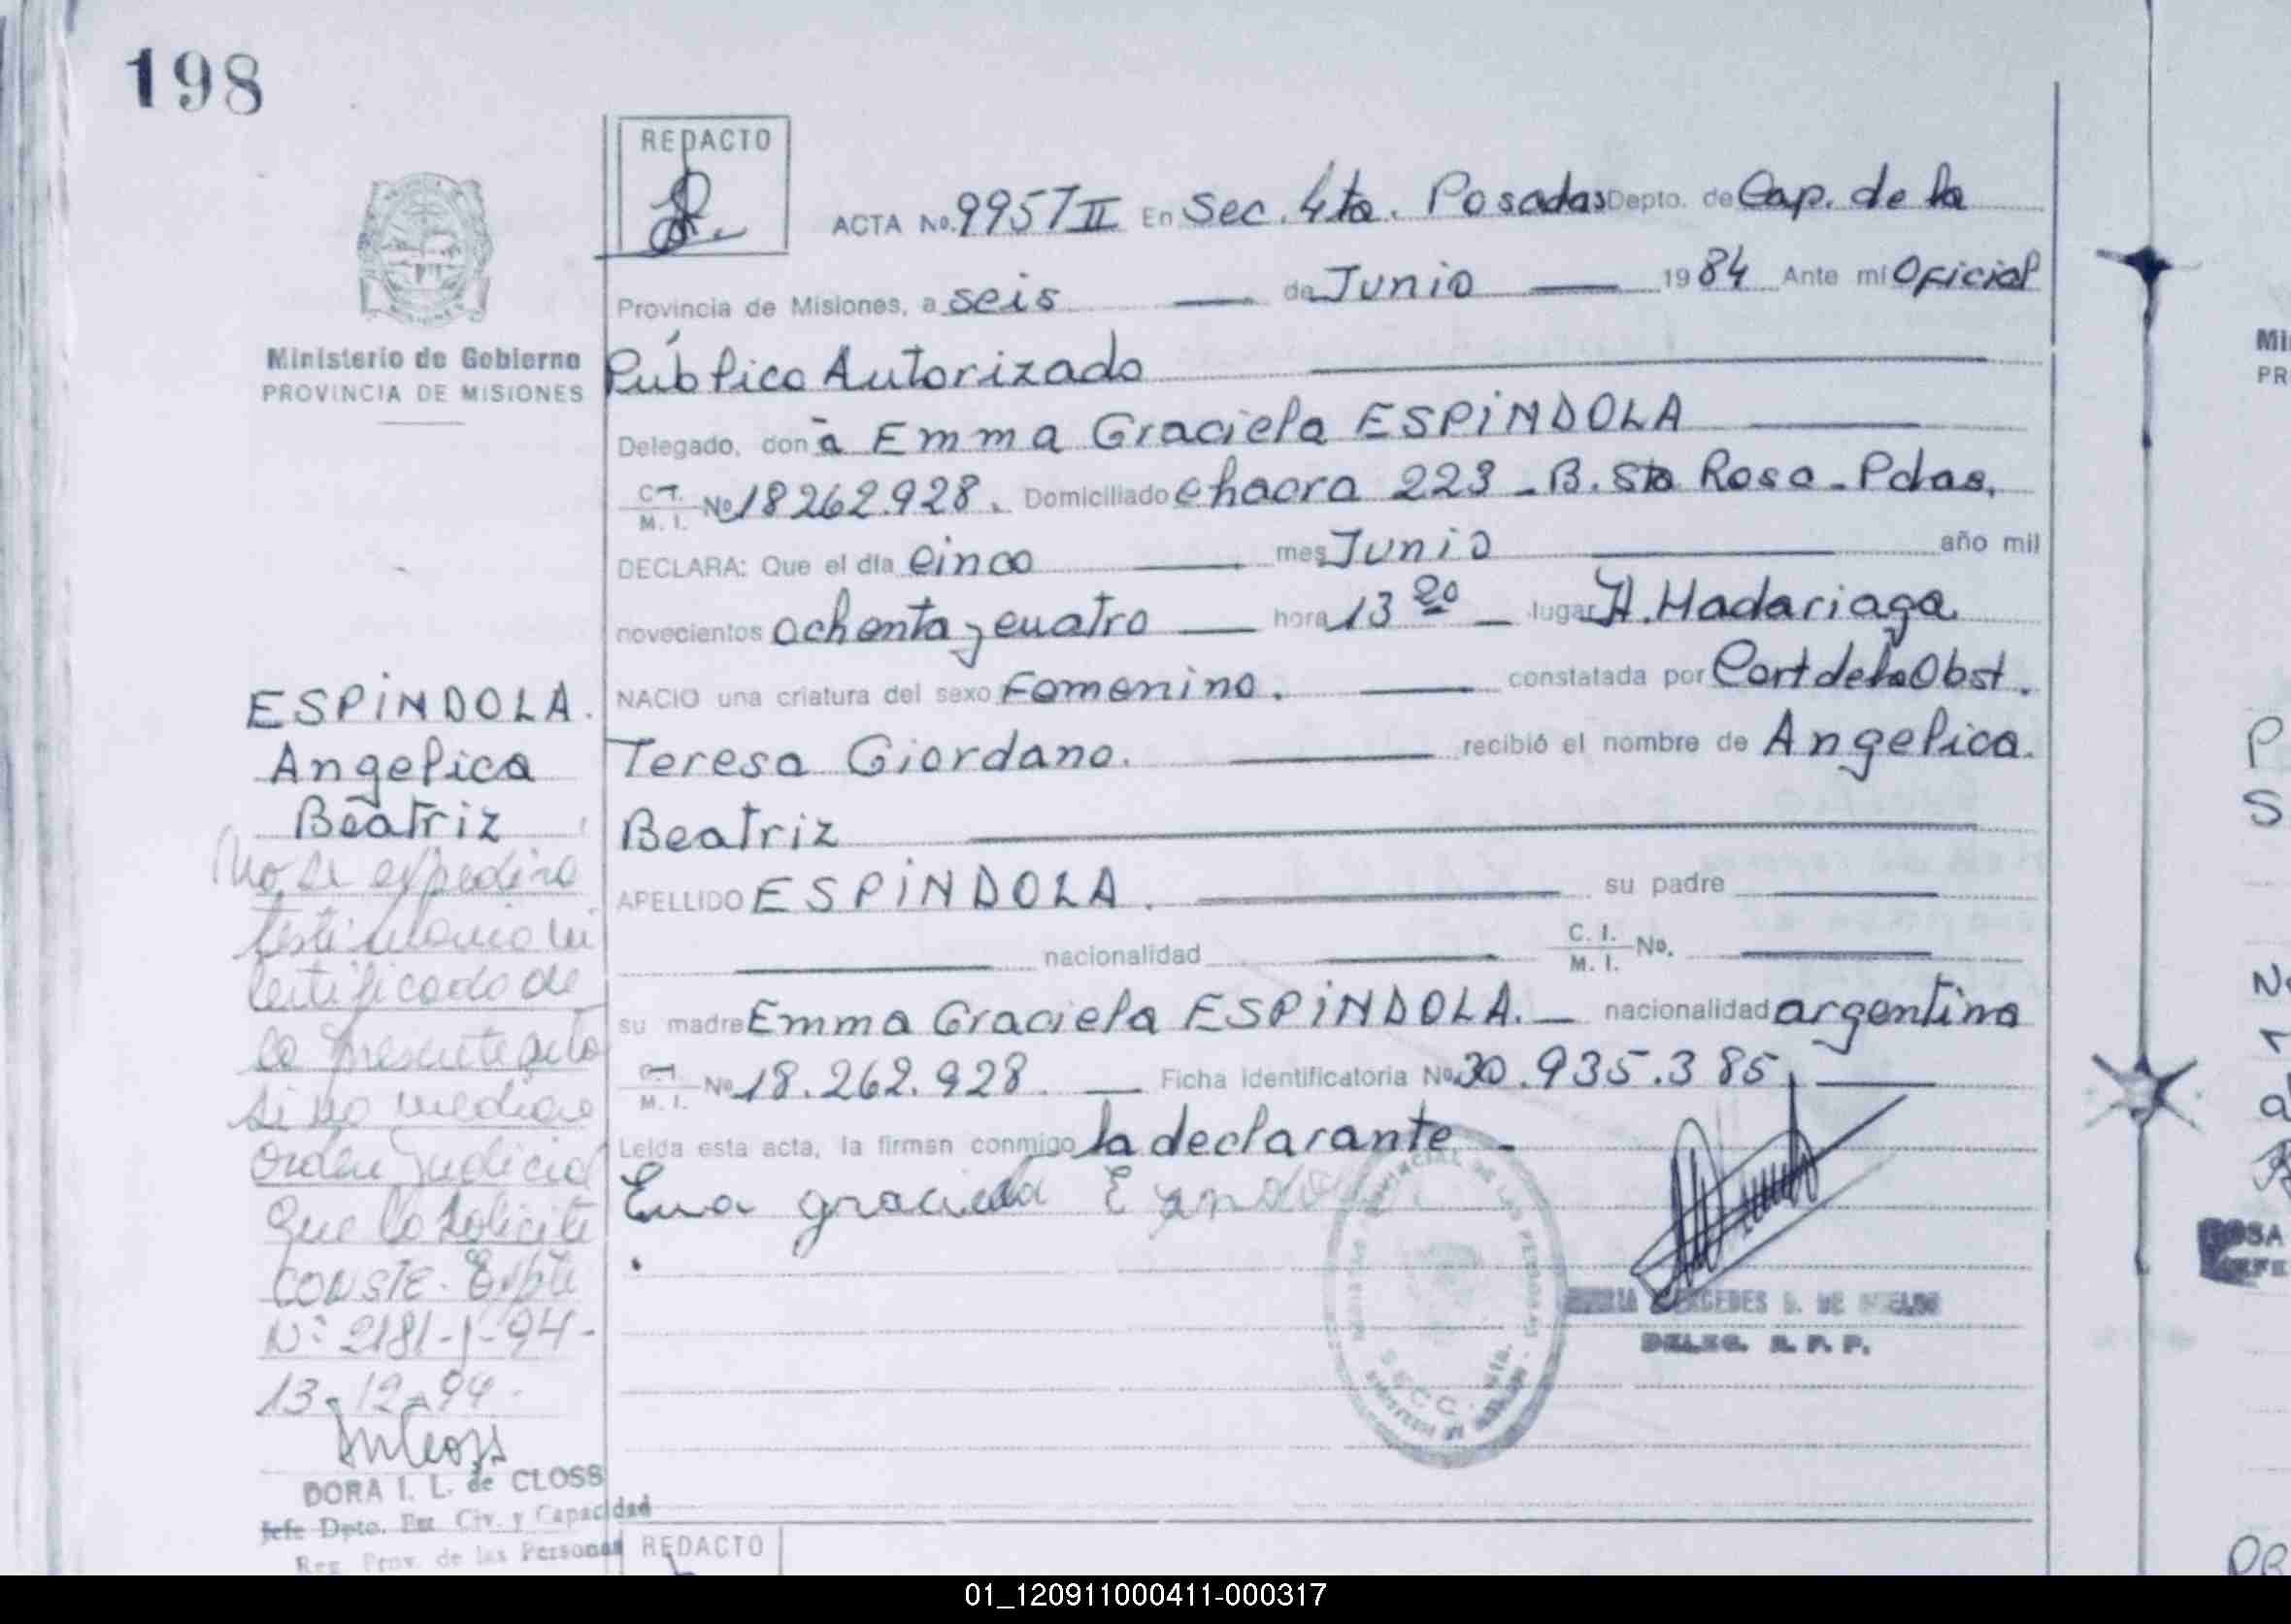 198
REDACTO
ACTA No. 9957 II En Sec. 4ta. Posadas Depto. de Cap. de la
Provincia de Misiones, a seis de Junio 1984 Ante mi Oficial
Ministerio de Gobierno
PROVINCIA DE MISIONES
Público Autorizado
Delegado, don a Emma Graciela ESPINDOLA
C.I. M. I. No 18262.928. Domiciliado chacra 223 - B. Sta Rosa - Pdas.
DECLARA: Que el día cinco mes Junio año mil
novecientos ochenta y cuatro hora 13 20 lugar H. Madariaga
NACIO una criatura del sexo Femenino. constatada por Cert de la Obst.
Teresa Giordano. recibió el nombre de Angelica
Beatriz
APELLIDO ESPINDOLA. su padre
nacionalidad C. I. M. I. No.
su madre Emma Graciela ESPINDOLA. nacionalidad argentina
C.I. M. I. No 18.262.928 Ficha identificatoria No 30.935.385
Leída esta acta, la firman conmigo la declarante
Ema graciela
MERCEDES D. DE
DELEG. R. P. P.
SECC. 4ta.
ESPINDOLA.
Angelica
Beatriz
No se expedira
testimonio ni
certificado de
la presente acta
si no mediare
Orden Judicial
Que lo solicite
CONSTE - Expte
Nº 2181-J-94-
13-12-94-
DORA I. L. de CLOSS
Jefe Dpto. Est Civ. y Capacidad
Reg. Prov. de las Personas
REDACTO
01_120911000411-000317